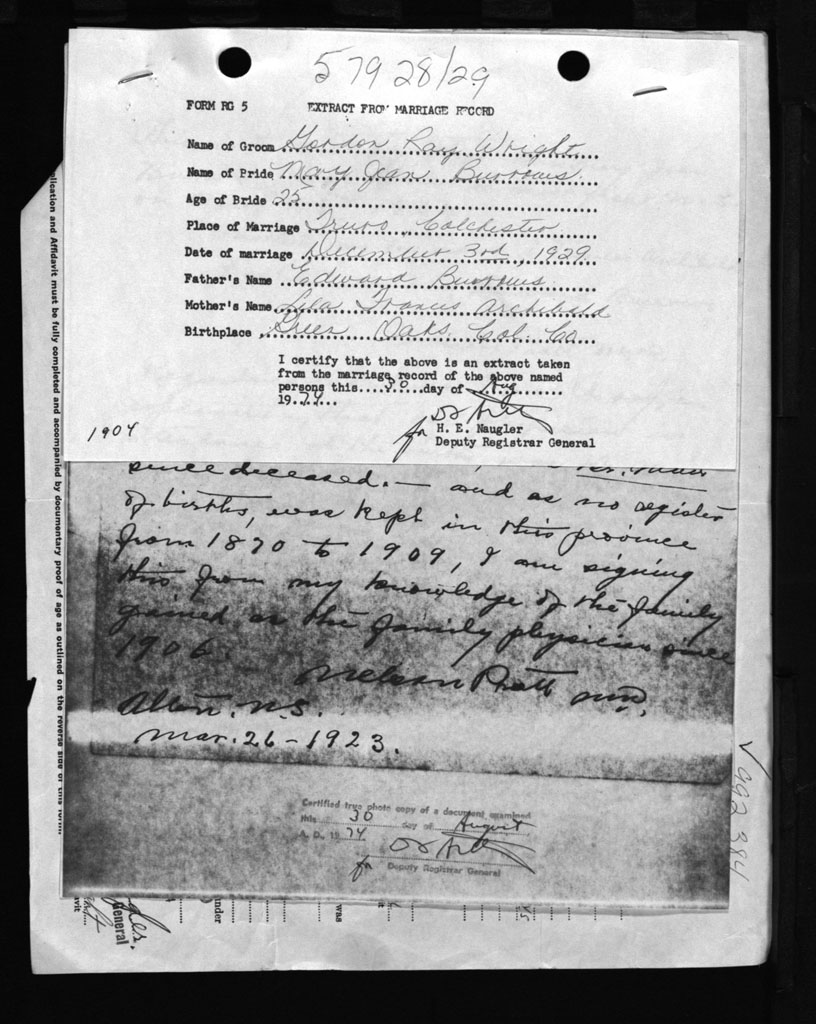 57928/29
FORM RG 5 EXTRACT FROM MARRIAGE RECORD
Name of Groom Gordon Ray Wright
Name of Bride Mary Jean Burrows.
Age of Bride 25
Place of Marriage Truro, Colchester
Date of marriage December 3rd, 1929
Father's Name Edward Burrows
Mother's Name Lila Francis Archibald
Birthplace Green Oaks Col. Co.
I certify that the above is an extract taken
from the marriage record of the above named
persons this 30 day of Aug
19 74
for H. E. Naugler
Deputy Registrar General
1904
since deceased. — and as no register
of births, was kept in this province
from 1870 to 1909, I am signing
this from my knowledge of the family
gained as the family physician since
1906. Nelson Pratt MD.
N.S.
Mar. 26 - 1923.
Certified true photo copy of a document examined
this 30 day of August
A. D., 19 74
for Deputy Registrar General
992 384
lication and Affidavit must be fully completed and accompanied by documentary proof of age as outlined on the reverse side of this form.
General
under
was